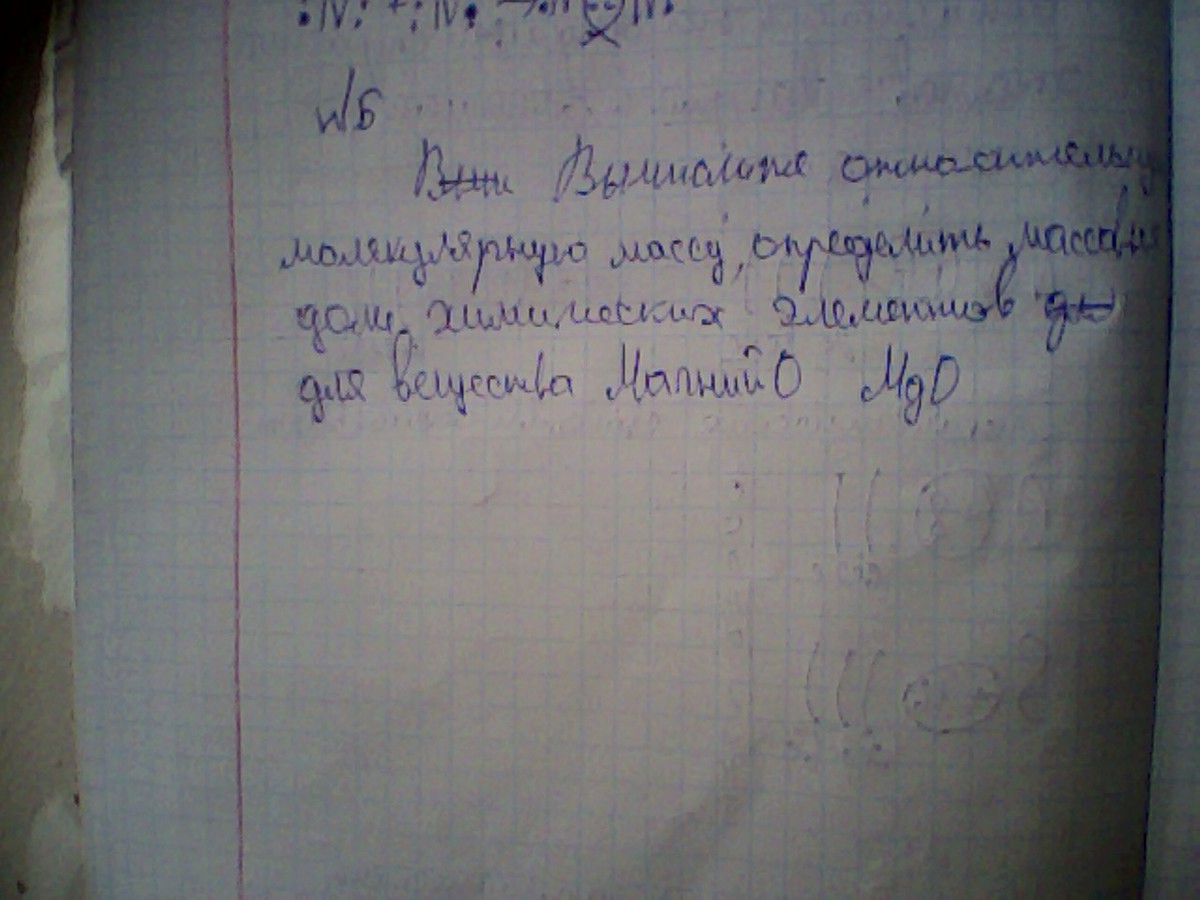 :N: + :N: →
№6
Вычислите относительну
молекулярную массу, определить массовые
доли химических элементов
для вещества МагнийО MgO